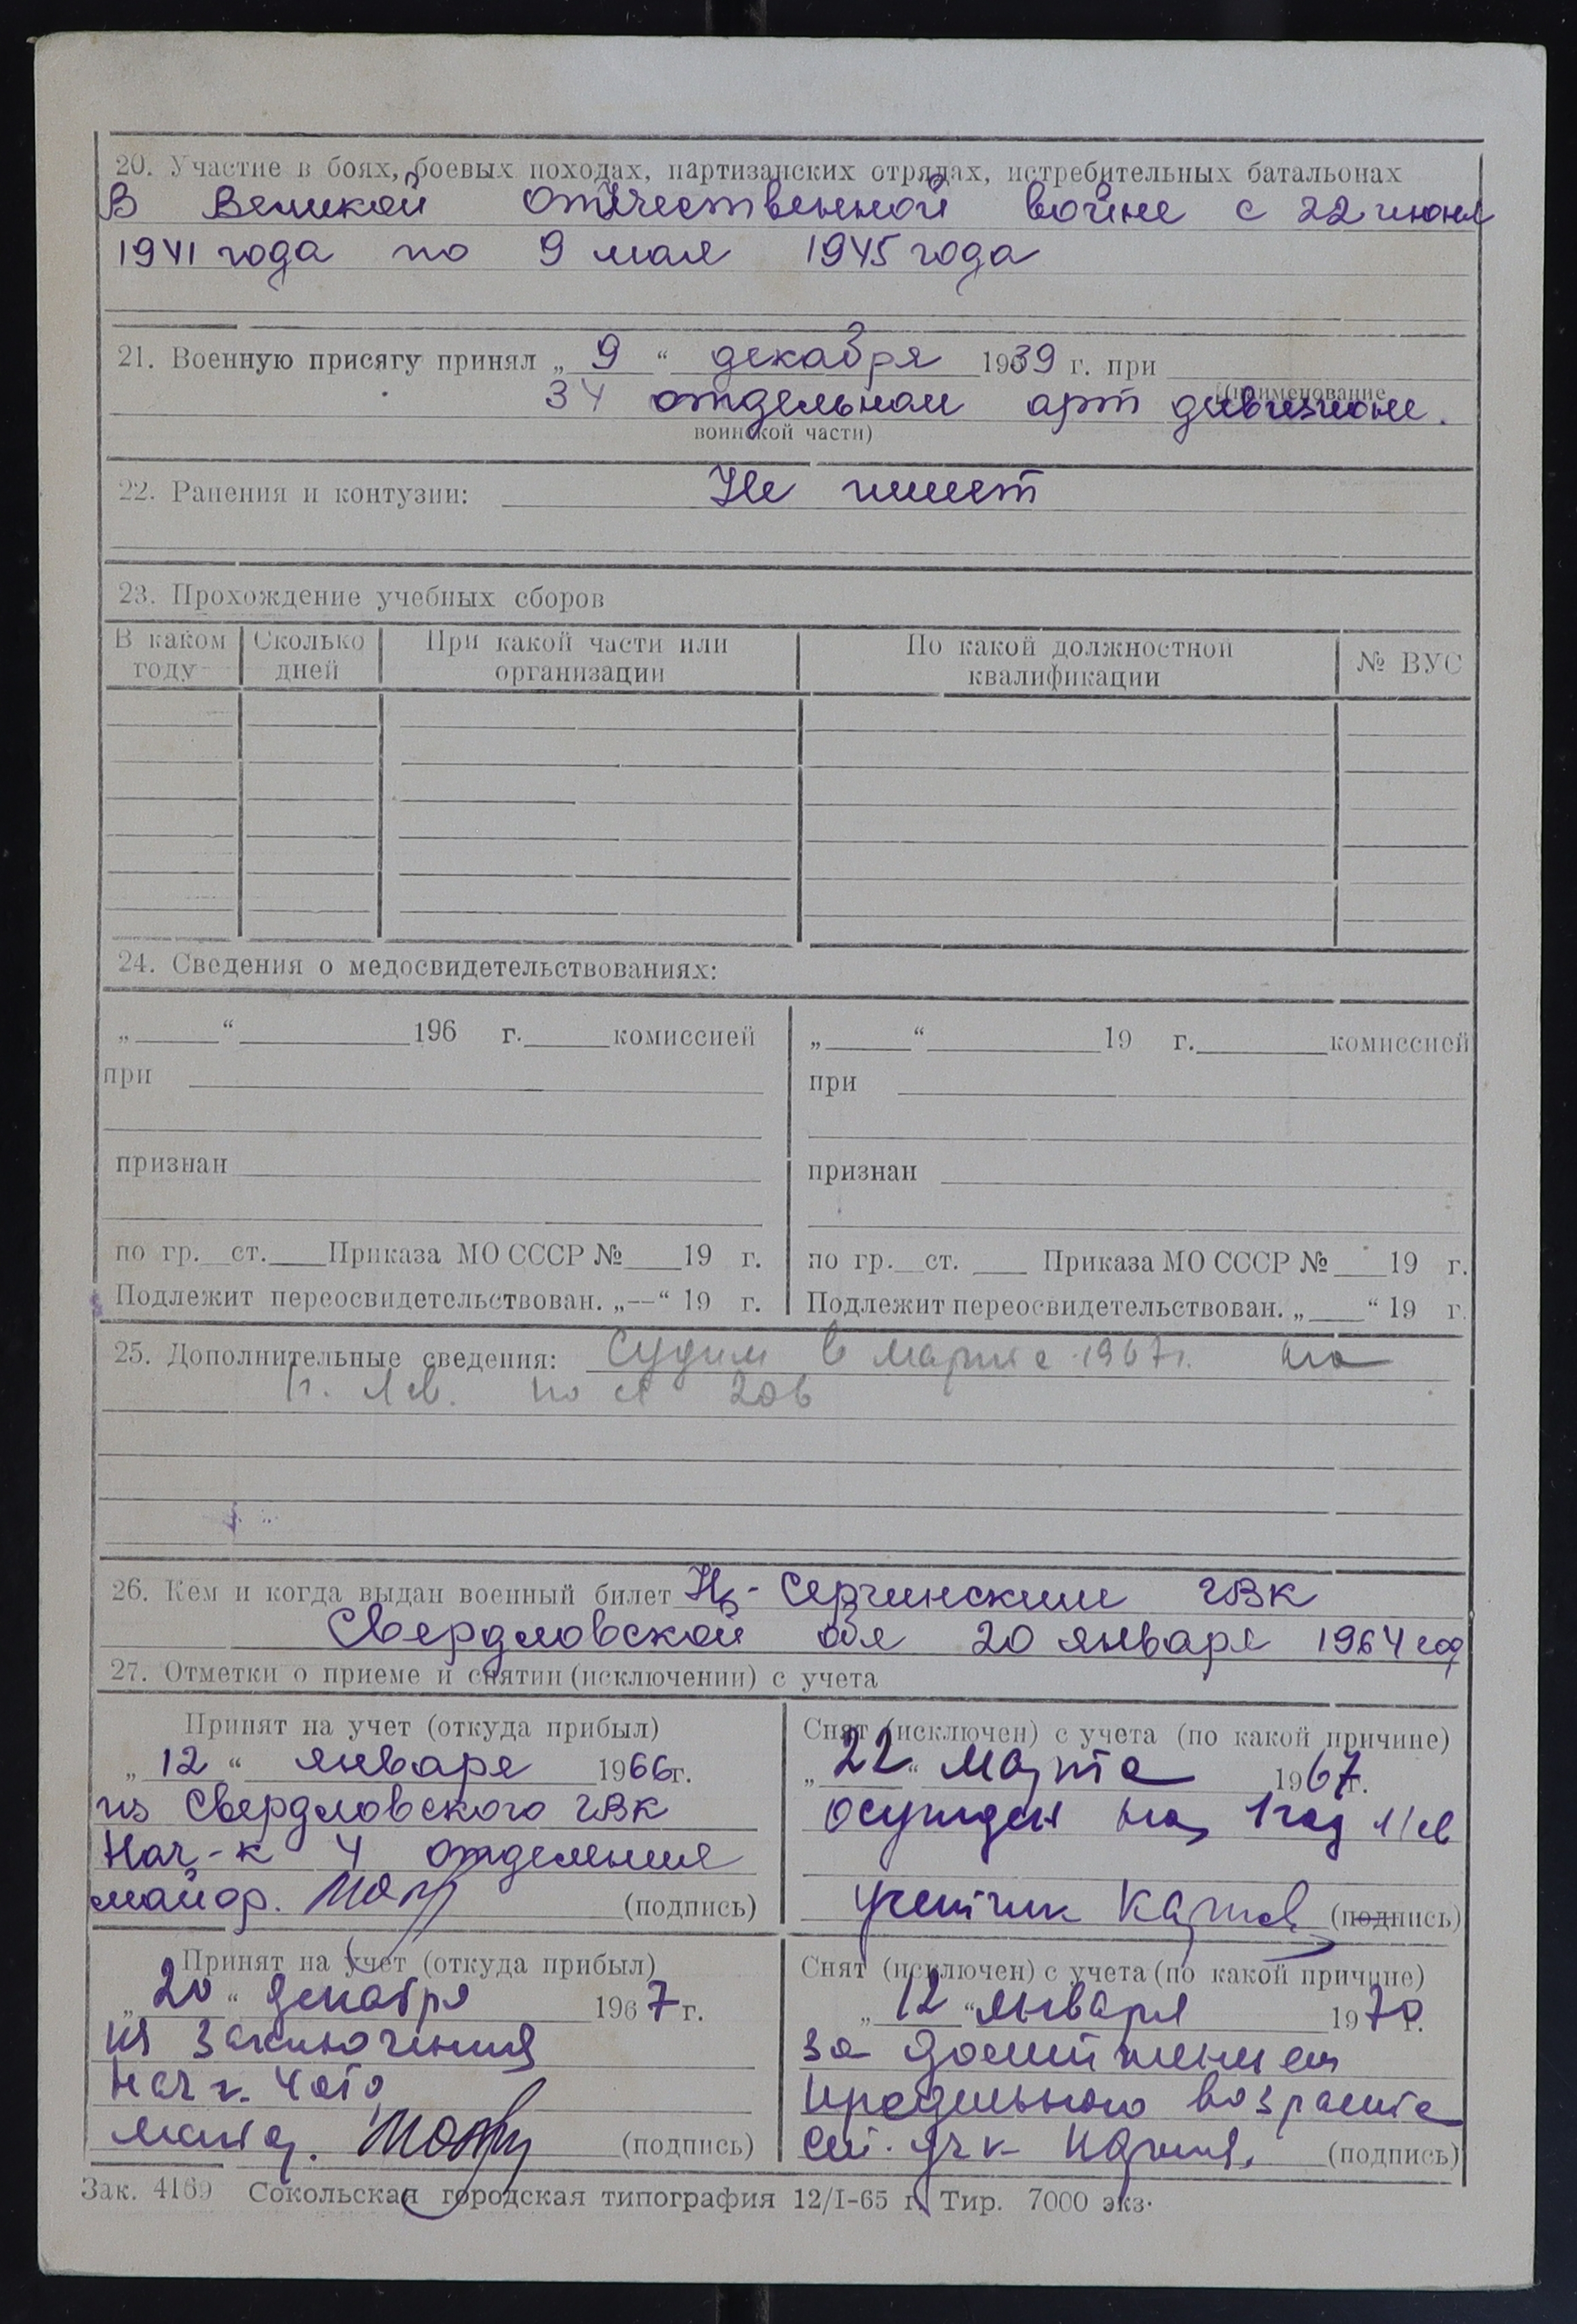 20. Участие в боях, боевых походах, партизанских отрядах, истребительных батальонах
В Великой Отечественной войне с 22 июня
1941 года по 9 мая 1945 года
21. Военную присягу принял „ 9 “ декабря 1939 г. при
(наименование
34 отдельном арт дивизионе.
воинской части)
22. Ранения и контузии: Не имеет
23. Прохождение учебных сборов
В каком году | Сколько дней | При какой части или организации | По какой должностной квалификации | № ВУС
24. Сведения о медосвидетельствованиях:
„ “ 196 г. комиссией
при
признан
по гр. ст. Приказа МО СССР № 19 г.
Подлежит переосвидетельствован. „—“ 19 г.
„ “ 19 г. комиссией
при
признан
по гр. ст. Приказа МО СССР № 19 г.
Подлежит переосвидетельствован. „ “ 19 г.
25. Дополнительные сведения: Судим в марте 1967г. на
1г. л/св. по ст 206
26. Кем и когда выдан военный билет Н-Сергинским ГВК
Свердловской обл 20 января 1964 год
27. Отметки о приеме и снятии (исключении) с учета
Принят на учет (откуда прибыл)
„ 12 “ января 1966г.
из Свердловского ГВК
Нач-к 4 отделения
майор. (подпись)
Снят (исключен) с учета (по какой причине)
„ 22 “ марта 1967г.
осужден на 1 год л/св
(подпись)
Принят на учет (откуда прибыл)
„ 20 “ декабря 1967 г.
из заключения
Нач. 4 отд
майор. (подпись)
Снят (исключен) с учета (по какой причине)
„ 12 “ января 1970 г.
за достижением
предельного возраста
(подпись)
Зак. 4169 Сокольская городская типография 12/I-65 г. Тир. 7000 экз.